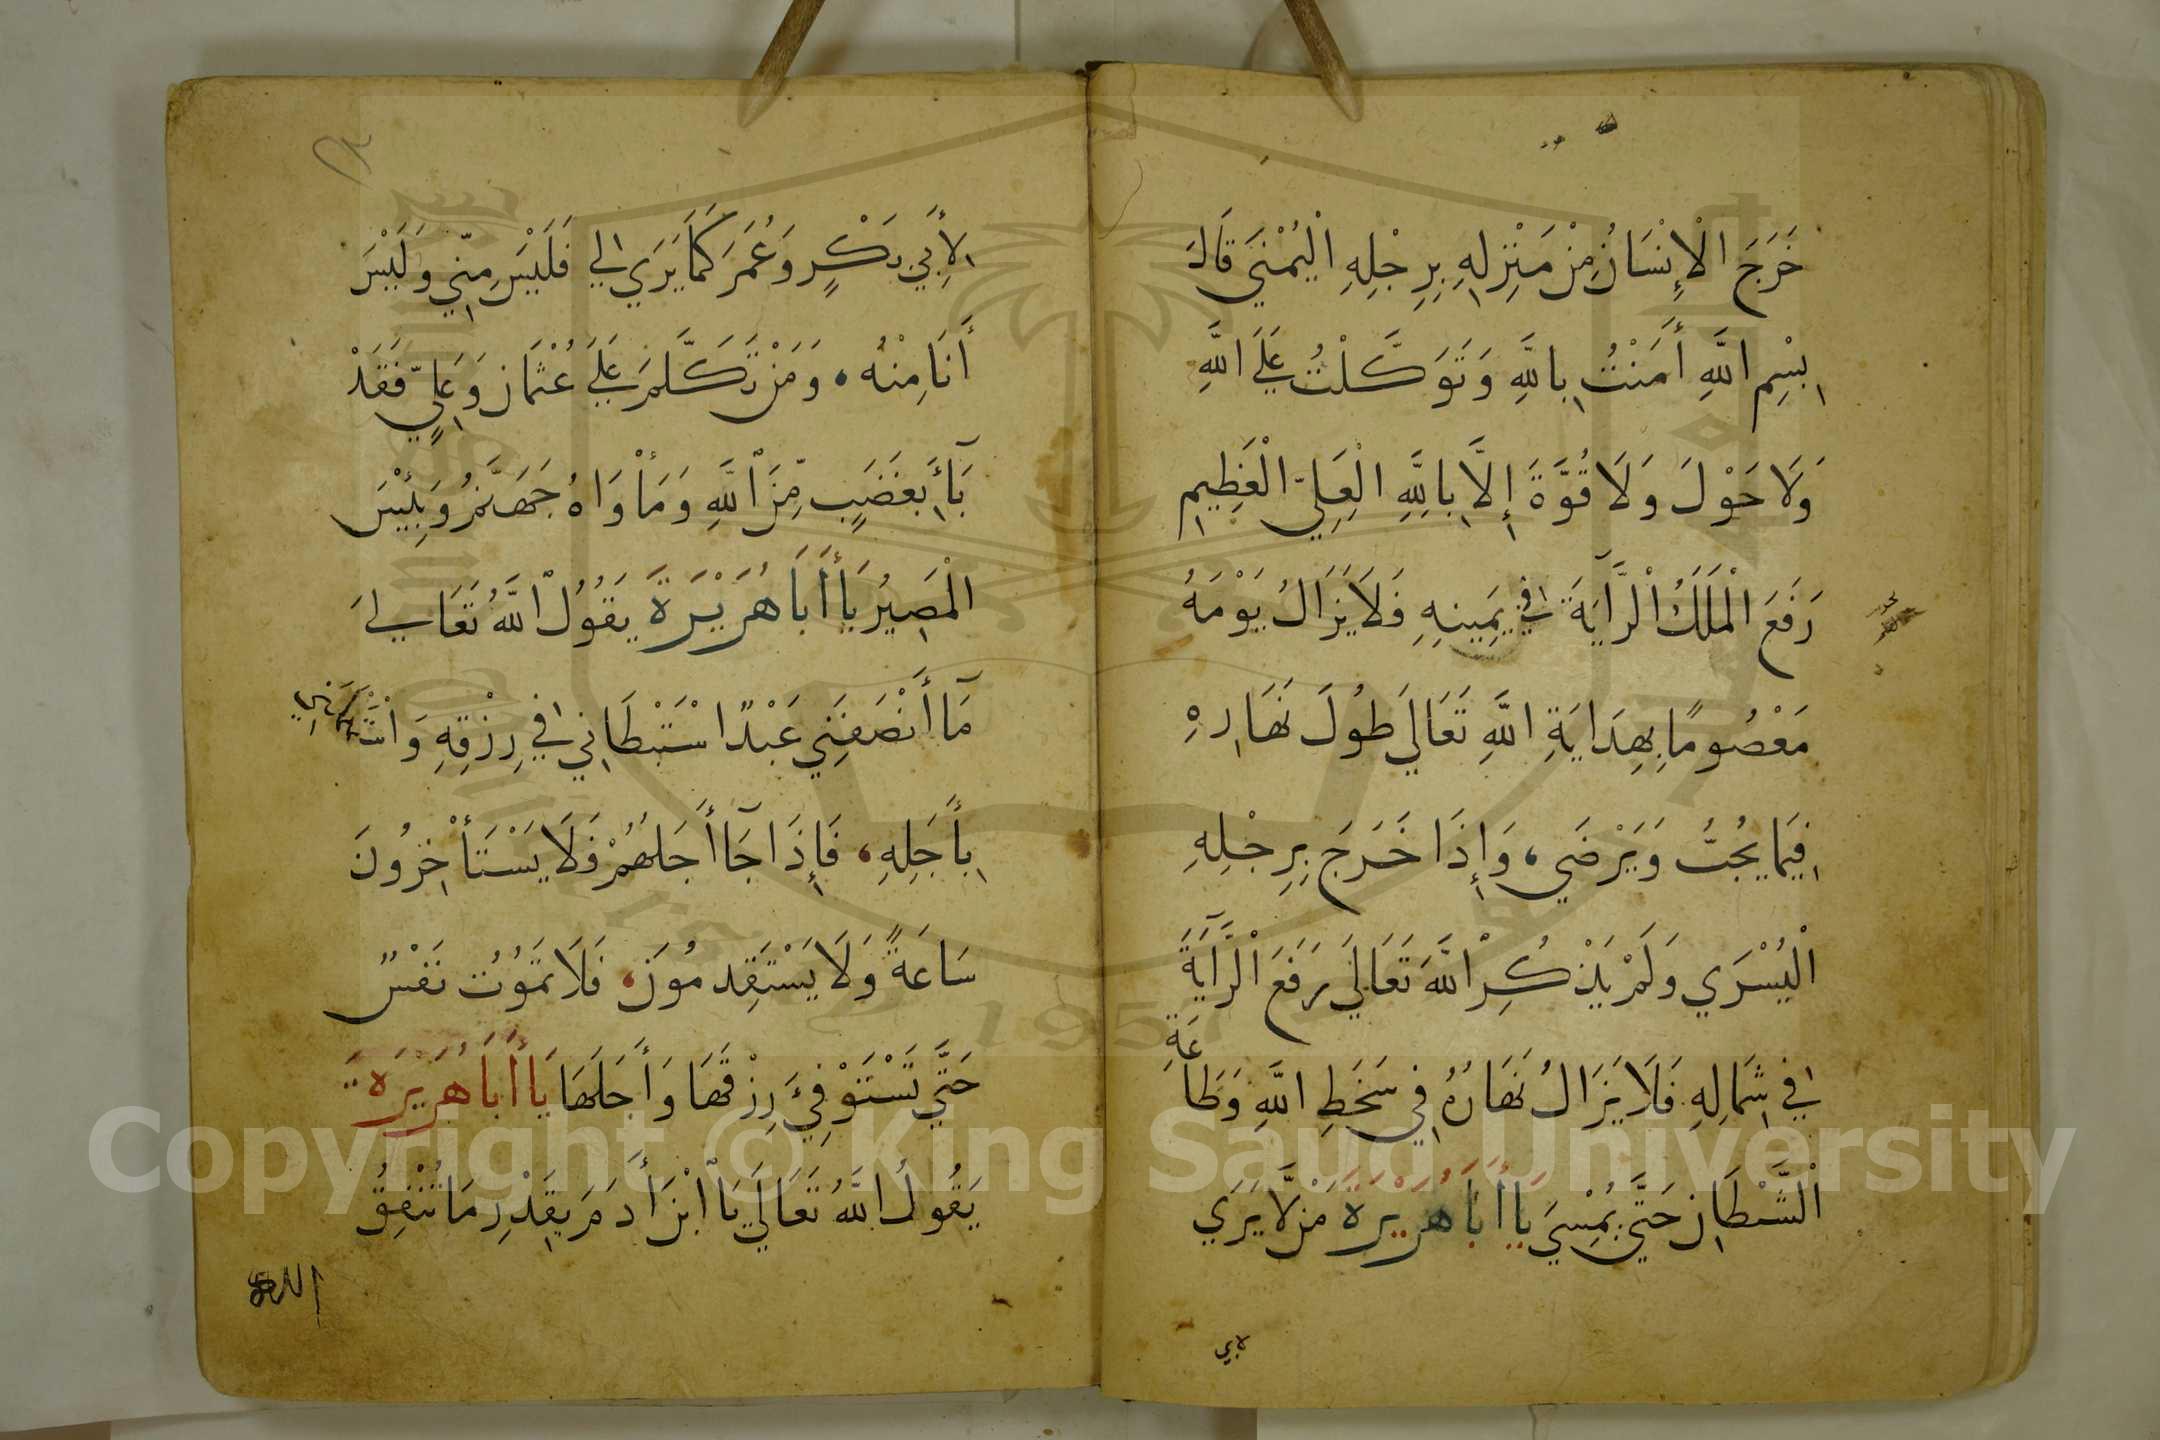 خَرَجَ الْإِنْسَانُ مِنْ مَنْزِلِهِ بِرِجْلِهِ الْيُمْنَي قَالَ
بِسْمِ اللَّهِ أَمَنْتُ بِاللَّهِ وَتَوَكَّلْتُ عَلَي اللَّهِ
وَلَا حَوْلَ وَلَا قُوَّةَ إِلَّا بِاللَّهِ الْعَلِيّ الْعَظِيمِ
رَفَعَ الْمَلَكُ الْرَّآيَةَ فِي يَمِينِهِ فَلَا يَزَالُ يَوْمَهُ
مَعْصُومًا بِهِدَايَةِ اللَّهِ تَعَالَي طُولَ نَهَارِهْ
فِيمَا يُحِبُّ وَيَرْضَي، وَإِذَا خَرَجَ بِرِجْلِهِ
الْيُسْرَي وَلَمْ يَذْكُرِ اللَّهَ تَعَالَي رَفَعَ الْرَّآيَةَ
فِي شِمَالِهِ فَلَا يَزَالُ نَهَارُهُ فِي سَخَطِ اللَّهِ وَطَاعَةِ
الْشَّيْطَانِ حَتَّي يُمْسِيَ يَا أَبَا هُرَيْرَةَ مَنْ لَّا يَرَي
لابي
لِأَبِي بَكْرٍ وَعُمَرَ كَمَا يَرَي لِي فَلَيْسَ مِنِّي وَلَيْسَ
أَنَا مِنْهُ، وَمَنْ تَكَلَّمَ عَلَي عُثْمَانَ وَعَلِيٍّ فَقَدْ
بَآءَ بِغَضَبٍ مِّنَ اللَّهِ وَمَأْوَاهُ جَهَنَّمُ وَبِئْيْسَ
الْمَصِيرُ يَا أَبَا هُرَيْرَةَ يَقُولُ اللَّهُ تَعَالَي
مَآ أَنْصَفَنِي عَبْدًا اسْتَبْطَانِي فِي رِزْقِهِ وَ
بِأَجَلِهِ، فَإِذَا جَآ أَجَلَهُمْ فَلَا يَسْتَأْخِرُونَ
سَاعَةً وَلَا يَسْتَقْدِمُونَ، فَلَا تَمُوُتُ نَفْسٌ
حَتَّي تَسْتَوْفِيَ رِزْقَهَا وَأَجَلَهَا يَا أَبَا هُرَيْرَةَ
يَقُولُ اللَّهُ تَعَالَي يَا ابْنَ أَدَمَ بِقَدْرِ مَا تُنْفِقُ
Copyright © King Saud University
1957